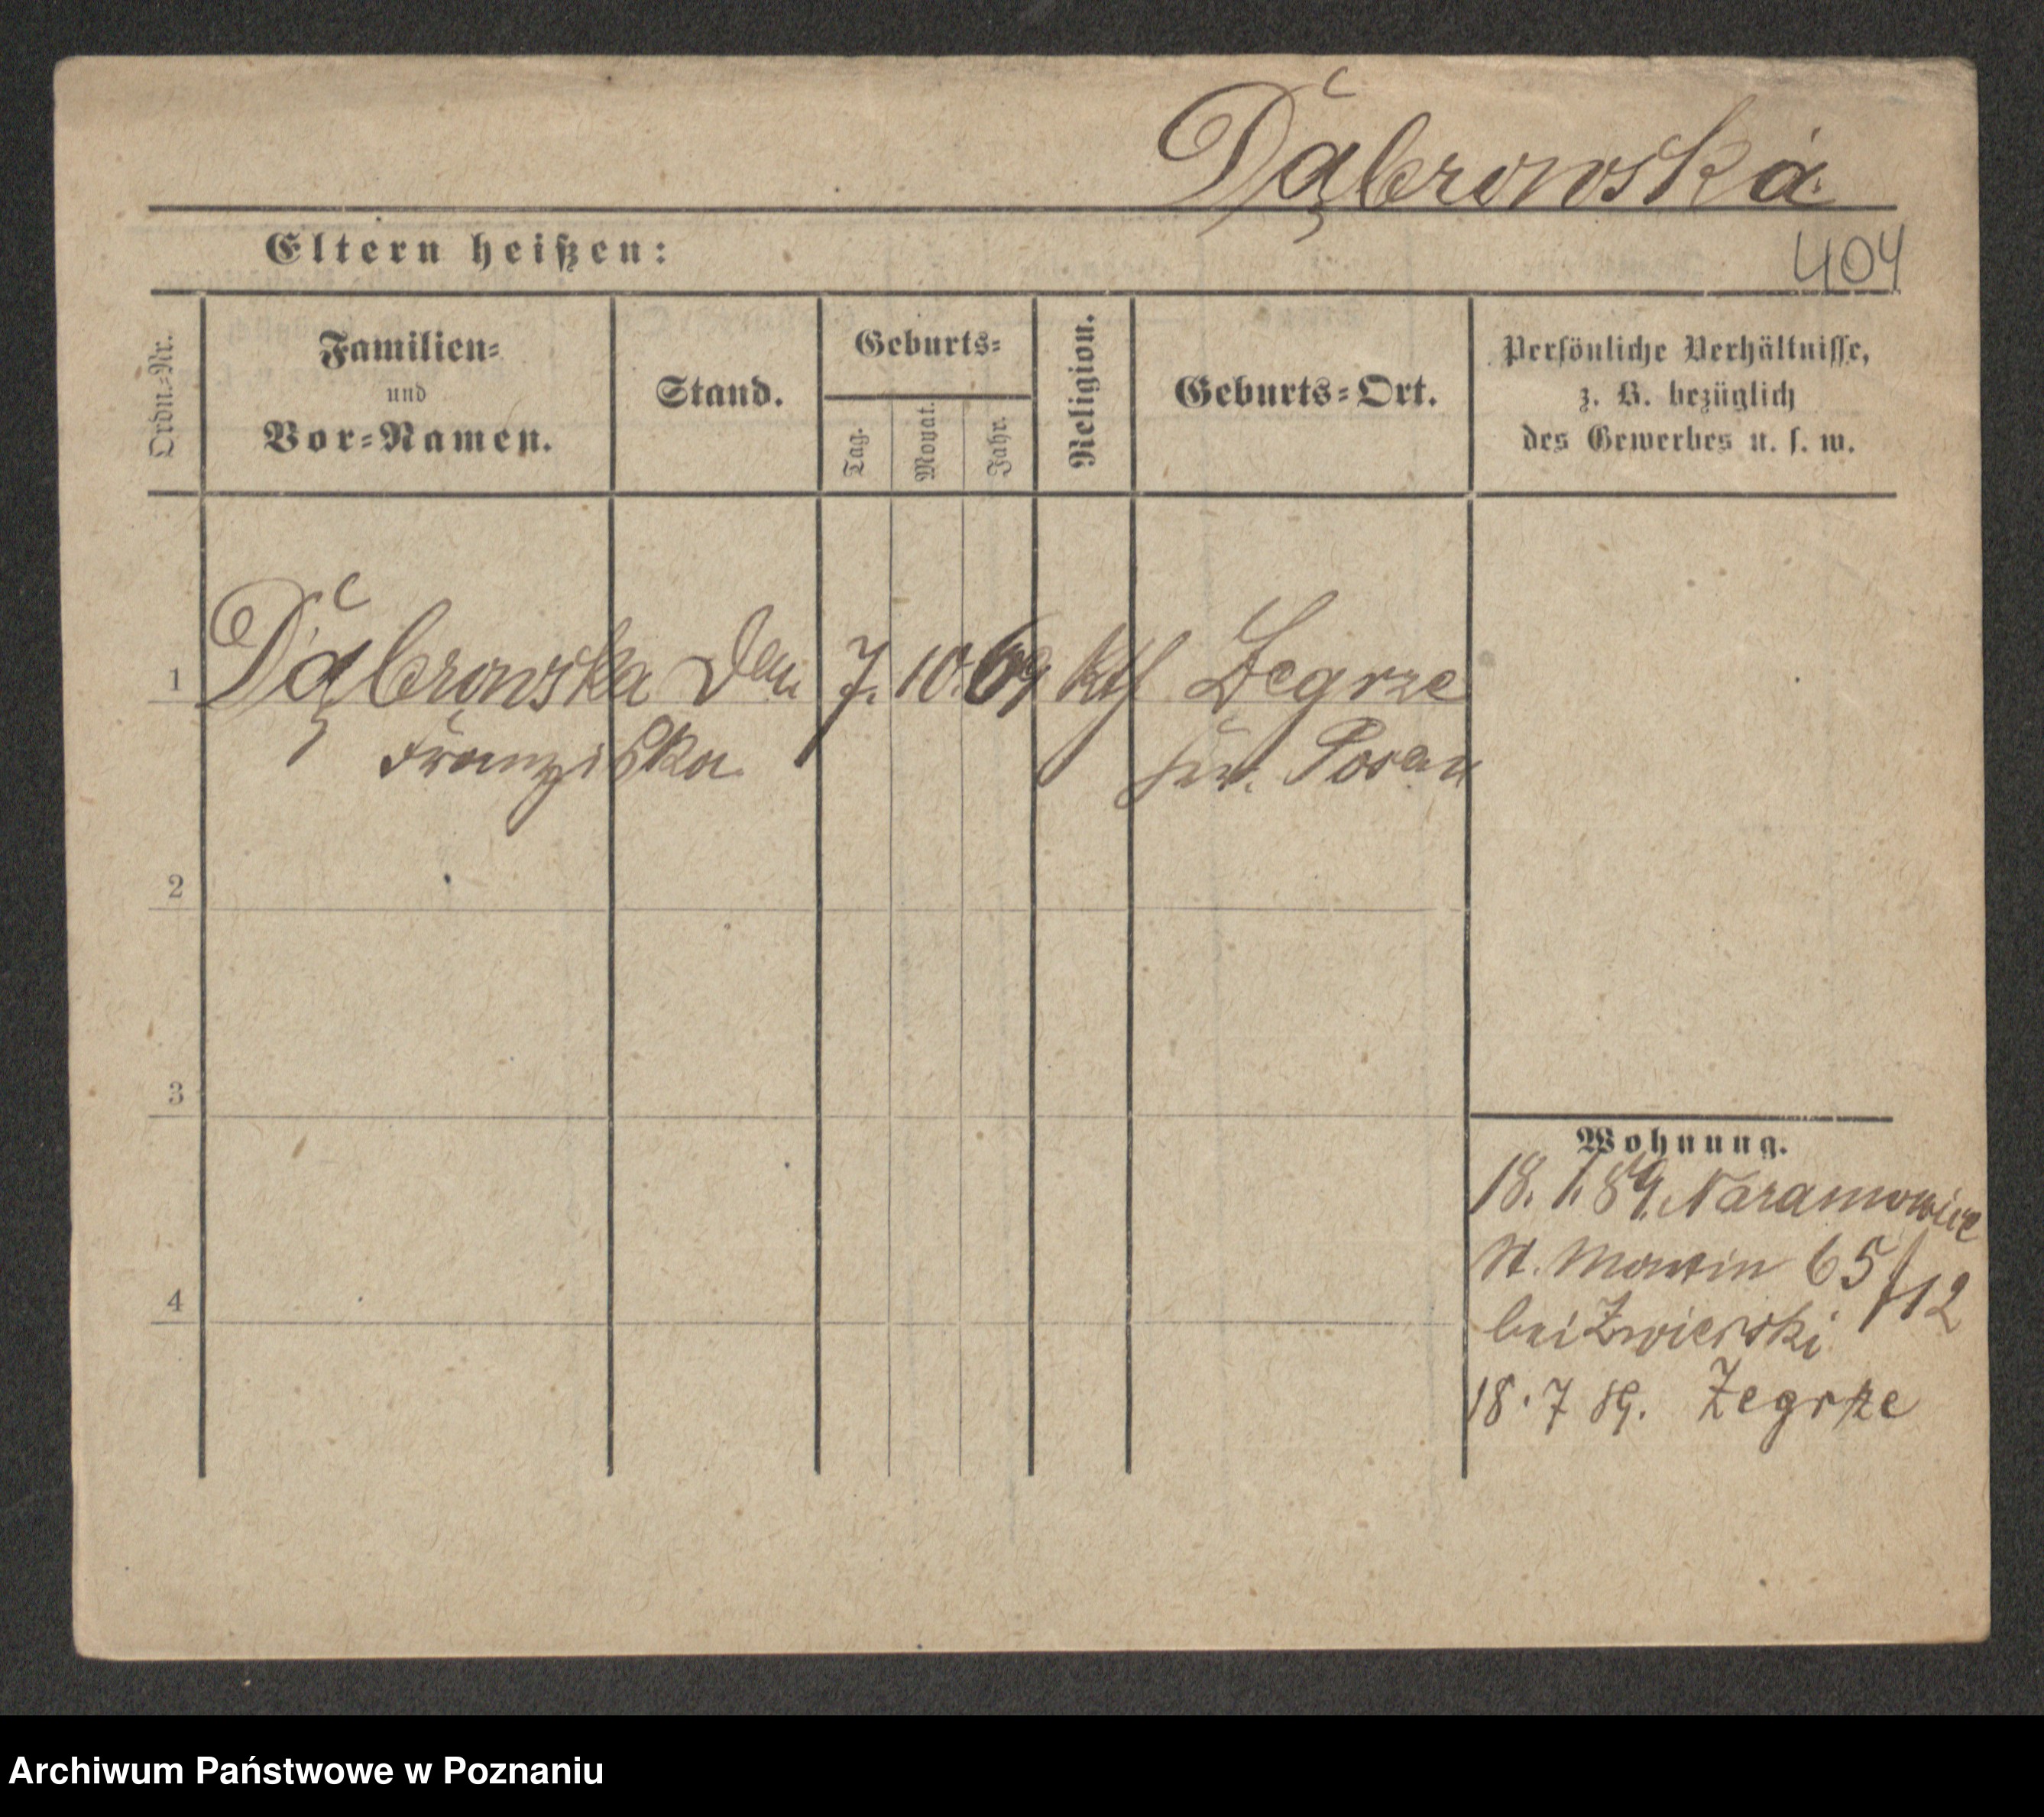 Dąbrowska
404
Eltern heißen:
Ordn.=Nr.
Familien=
und
Vor=Namen.
Stand.
Geburts=
Tag.
Monat.
Jahr.
Religion.
Geburts=Ort.
Persönliche Verhältnisse,
z. B. bezüglich
des Gewerbes u. s. w.
1 Dąbrowska 7. 10. 69 kth Zegrze
Franziska Posen
2
3
4
Wohnung.
18. 1. 89. Naramowice
St. Martin 65/12
bei Zwierski
18. 7 89. Zegrze
Archiwum Państwowe w Poznaniu